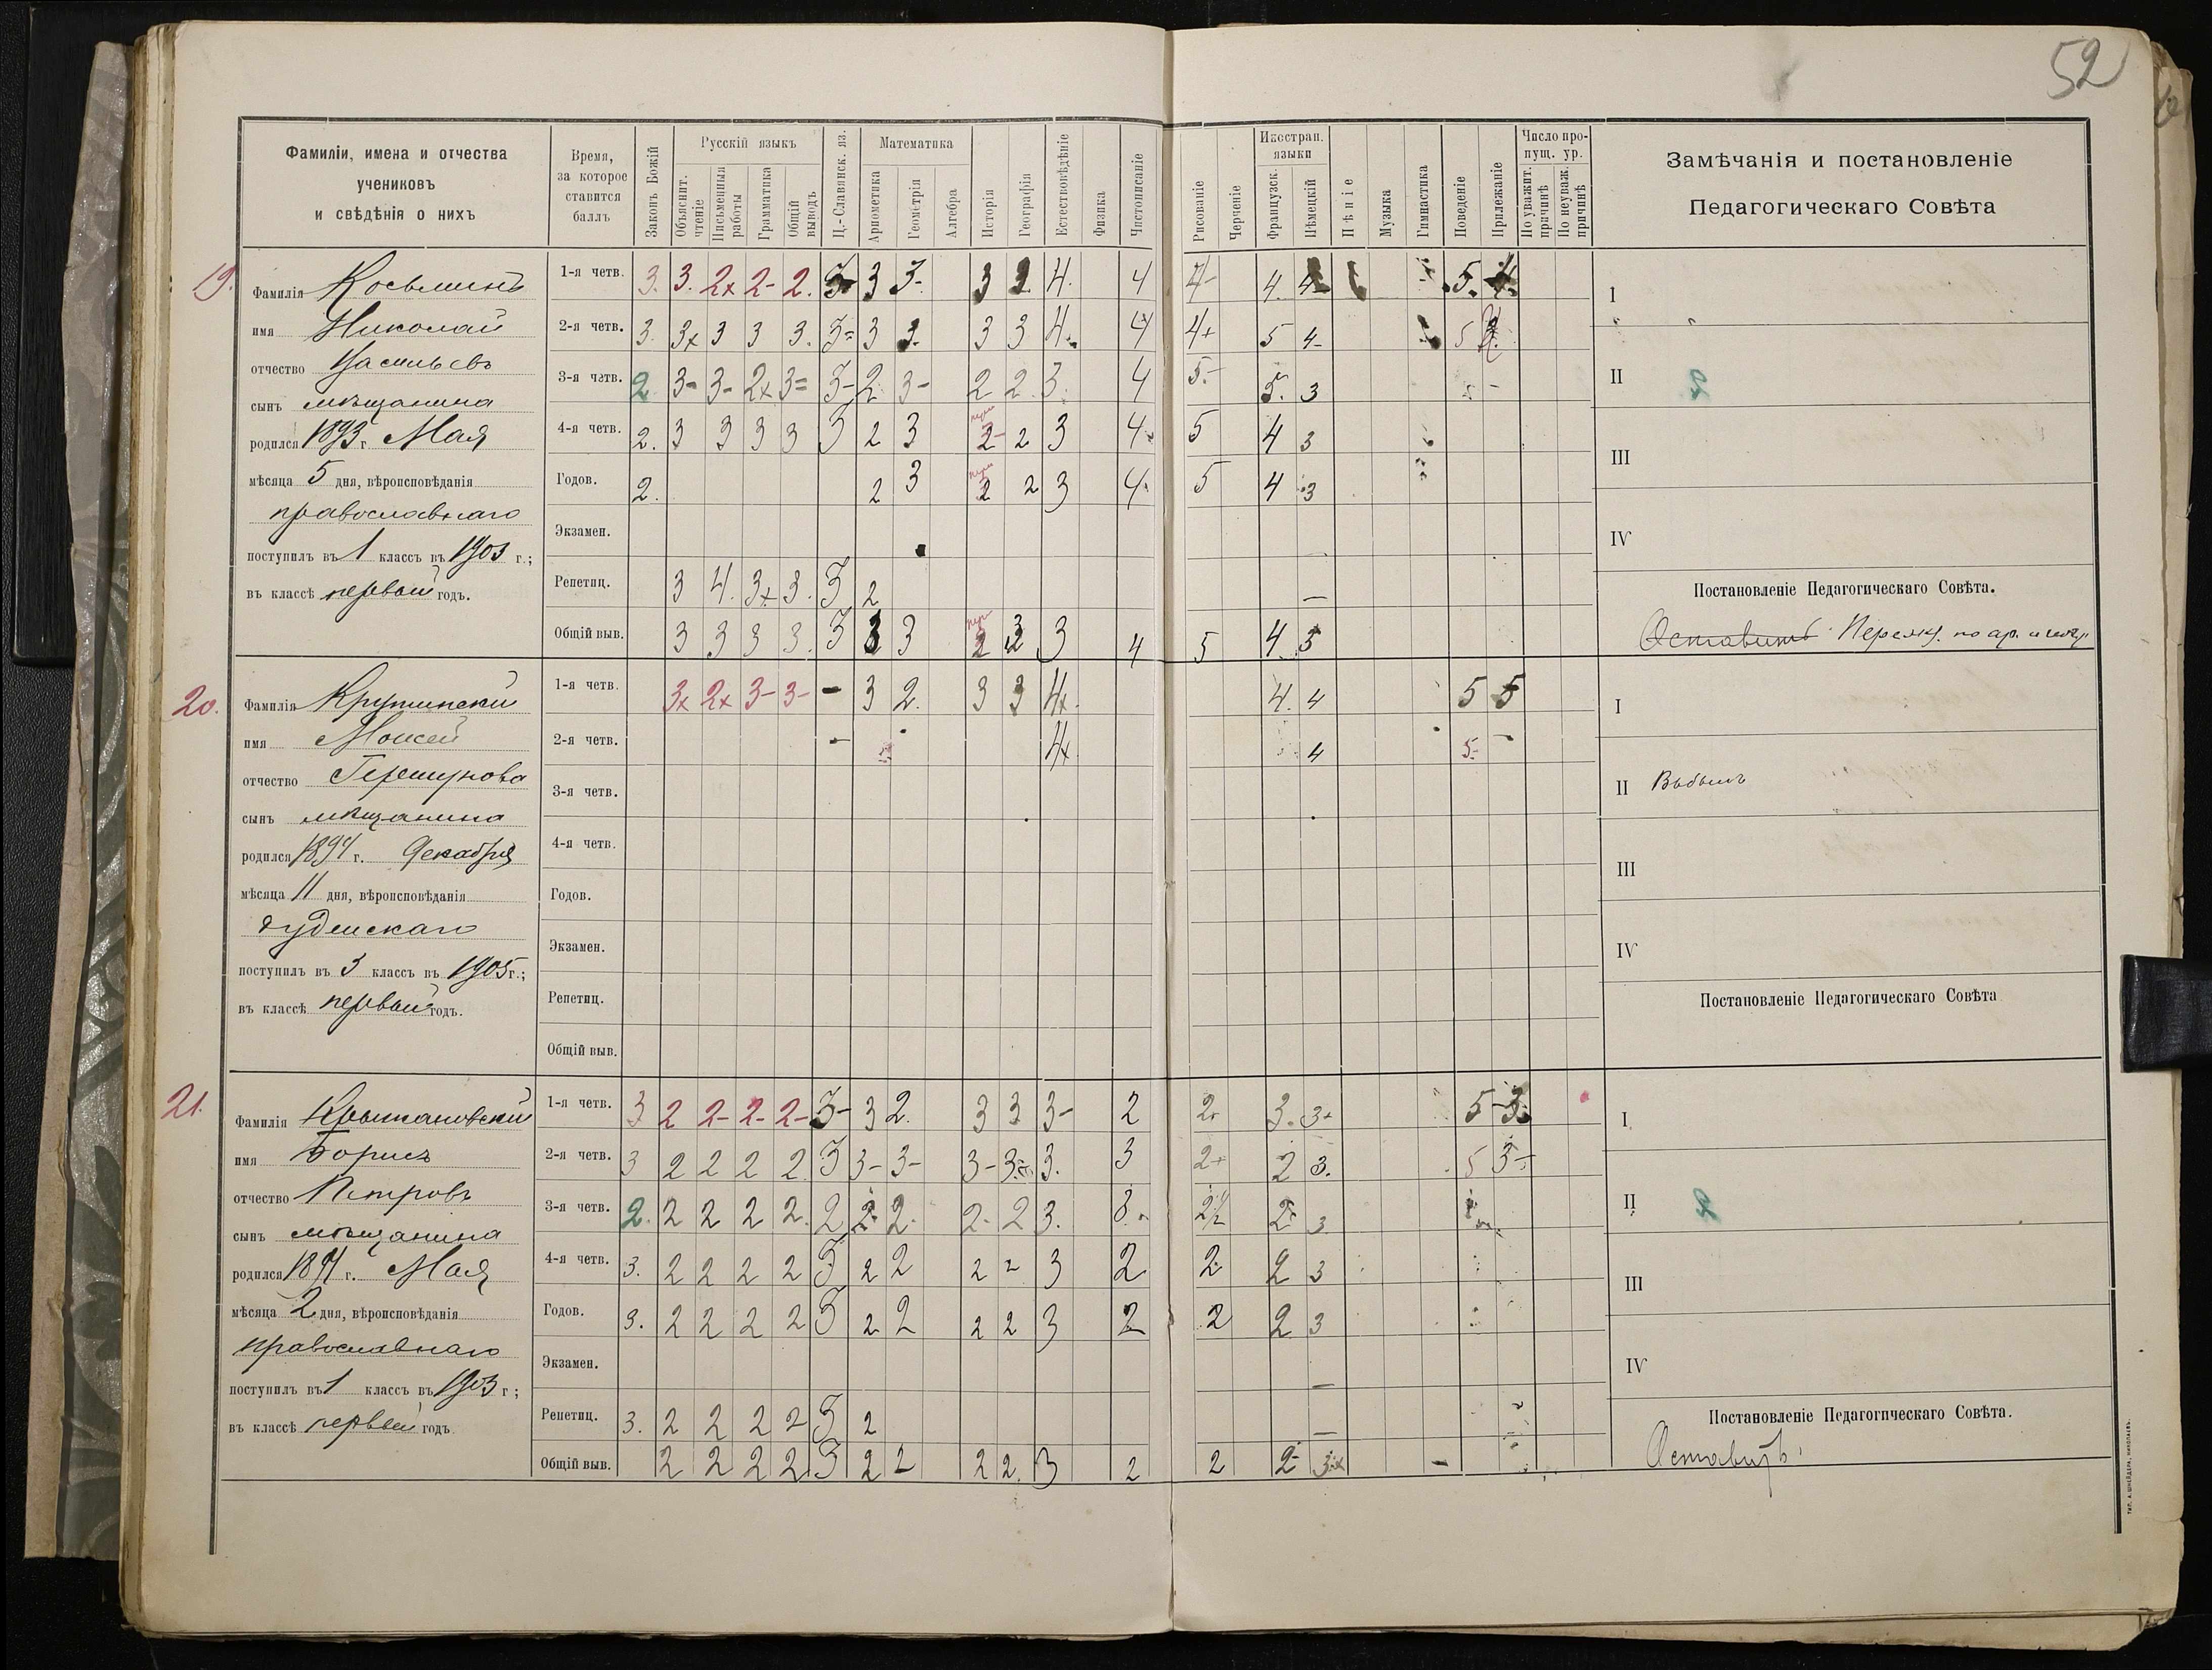 52
Фамиліи, имена и отчества
учениковъ
и свѣдѣнія о нихъ
Время,
за которое
ставится
баллъ
Законъ Божій
Русскій языкъ
Объяснит. чтеніе
Письменныя работы
Грамматика
Общій выводъ
Ц.-Славянск. яз.
Математика
Ариѳметика
Геометрія
Алгебра
Исторія
Географія
Естествовѣдѣніе
Физика
Чистописаніе
Рисованіе
Черченіе
Иностран. языки
Французск.
Нѣмецкій
Пѣніе
Музыка
Гимнастика
Поведеніе
Прилежаніе
Число пропущ. ур.
По уважит. причинѣ
По неуваж. причинѣ
Замѣчанія и постановленіе
Педагогическаго Совѣта
19.
Фамилія Косьминъ
имя Николай
отчество Васильевъ
сынъ мѣщанина
родился 1893 г. Мая
мѣсяца 5 дня, вѣроисповѣданія
православнаго
поступилъ въ 1 классъ въ 1903 г.;
въ классѣ первый годъ.
1-я четв. 3. 3. 2x 2- 2. 3 3 3- 3 3. 4. 4 4- 4. 4 5. 4.
2-я четв. 3. 3x 3 3 3. 3= 3 3. 3 3 4. 4 4+ 5 4- 5
3-я четв. 2 3- 3- 2x 3= 3- 2 3- 2 2. 3. 4 5.- 5. 3
4-я четв. 2. 3 3 3 3 3 2 3 2- 2 3 4. 5 4 3
Годов. 2. 2 3 2 2 3 4. 5 4 3
Экзамен.
Репетиц. 3 4. 3x 3. 3 2 —
Общій выв. 3 3 3 3. 3 3 3 3 4 5 4 3
I
II
III
IV
Постановленіе Педагогическаго Совѣта.
Оставить Переэкз. по ар. и
20.
Фамилія Крупинскій
имя Моисей
отчество Гершунова
сынъ мѣщанина
родился 1894 г. Декабря
мѣсяца 11 дня, вѣроисповѣданія
іудейскаго
поступилъ въ 3 классъ въ 1905 г.;
въ классѣ первый годъ.
1-я четв. 3x 2x 3- 3- - 3 2. 3 3 4x 4. 4 5 5
2-я четв. - 4x 4 5-
3-я четв.
4-я четв.
Годов.
Экзамен.
Репетиц.
Общій выв.
I
II Выбылъ
III
IV
Постановленіе Педагогическаго Совѣта
21.
Фамилія Крыжановскій
имя Борисъ
отчество Петровъ
сынъ мѣщанина
родился 1891 г. Мая
мѣсяца 2 дня, вѣроисповѣданія
православнаго
поступилъ въ 1 классъ въ 1903 г;
въ классѣ первый годъ
1-я четв. 3 2 2- 2- 2- 3- 3 2. 3 3 3- 2 2+ 3. 3+ 5- 3.
2-я четв. 3 2 2 2 2 3 3- 3- 3- 3- 3. 3 2+ 2 3. 5 3-
3-я четв. 2. 2 2 2 2. 2 2. 2. 2. 2 3. 3. 2½ 2 3
4-я четв. 3. 2 2 2 2 3 2 2 2 2 3 2 2. 2 3
Годов. 3. 2 2 2 2 3 2 2 2 2 3 2 2 2 3
Экзамен. —
Репетиц. 3. 2 2 2 2 3 2 —
Общій выв. 2 2 2 2 3 2 2 2 2. 3 2 2 2 3
I
II
III
IV
Постановленіе Педагогическаго Совѣта.
Оставить
ТИП. А. ШНЕЙДЕРА, НИКОЛАЕВЪ.